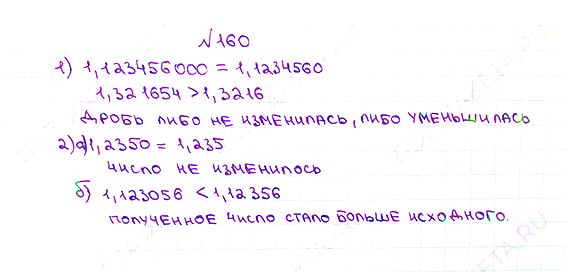 №160
1) 1,123456000 = 1,1234560
1,321654 > 1,3216
ДРОБЬ ЛИБО НЕ ИЗМЕНИЛАСЬ, ЛИБО УМЕНЬШИЛАСЬ
2) а) 1,2350 = 1,235
ЧИСЛО НЕ ИЗМЕНИЛОСЬ
б) 1,123056 < 1,12356
ПОЛУЧЕННОЕ ЧИСЛО СТАЛО БОЛЬШЕ ИСХОДНОГО.